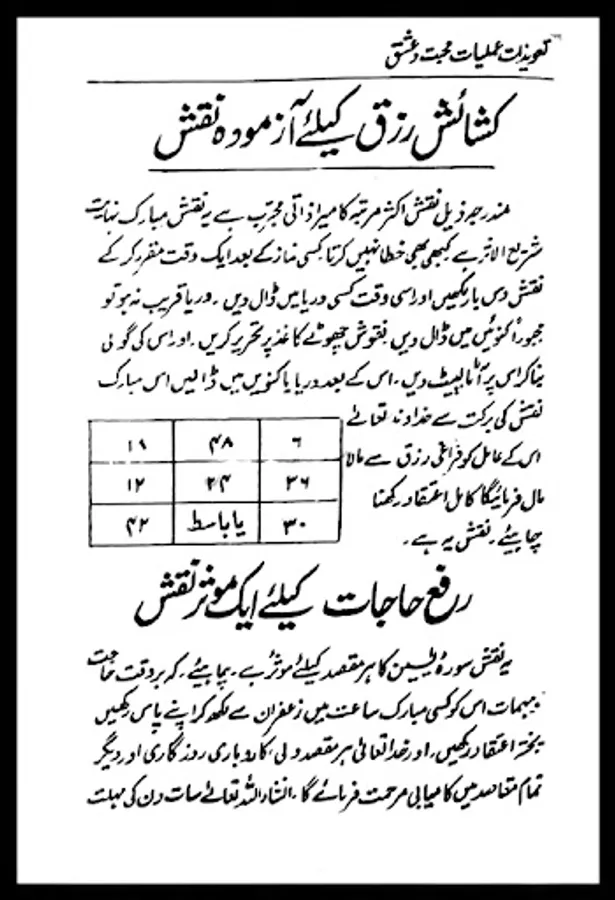 تعویذات عملیات محبت و عشق
کشائش رزق کیلئے آزمودہ نقش
مندرجہ ذیل نقش اکثر مرتبہ کا میرا ذاتی مجرب ہے یہ نقش مبارک نہایت
سریع الاثر ہے کبھی بھی خطا نہیں کرتا کسی نماز کے بعد ایک وقت مقرر کر کے
نقش دس بار لکھیں اور اسی وقت کسی دریا میں ڈال دیں ۔ دریا قریب نہ ہو تو
مجبوراً کنوئیں میں ڈال دیں نقوش چھوٹے کاغذ پر تحریر کریں ۔ اور اس کی گولی
بنا کر اس پر آٹا لپیٹ دیں ۔ اس کے بعد دریا یا کنویں میں ڈالیں اس مبارک
نقش کی برکت سے خداوند تعالےٰ
اس کے عامل کو فراخی رزق سے مالا
مال فرمائیگا کامل اعتقاد رکھنا
چاہیئے ۔ نقش یہ ہے ۔
۶ ۴۸ ۱۸
۳۶ ۲۴ ۱۲
۳۰ یا باسط ۴۲
رفع حاجات کیلئے ایک موثر نقش
یہ نقش سورہ یٰسین کا ہر مقصد کیلئے موثر ہے ۔ چاہیئے ۔ کہ بر وقت حاجت
مہمات اس کو کسی مبارک ساعت میں زعفران سے لکھ کر اپنے پاس رکھیں
پختہ اعتقاد رکھیں ۔ اور خدا تعالیٰ ہر مقصد دلی، کاروباری روزگاری اور دیگر
تمام مقاصد میں کامیابی مرحمت فرمائے گا ۔ انشاء اللہ تعالےٰ سات دن کی مہلت